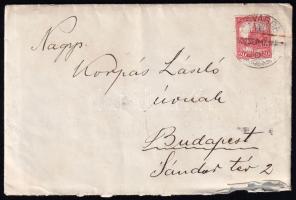 Nagys.
Korpás László
úrnak
Budapest
Sándor tér 2